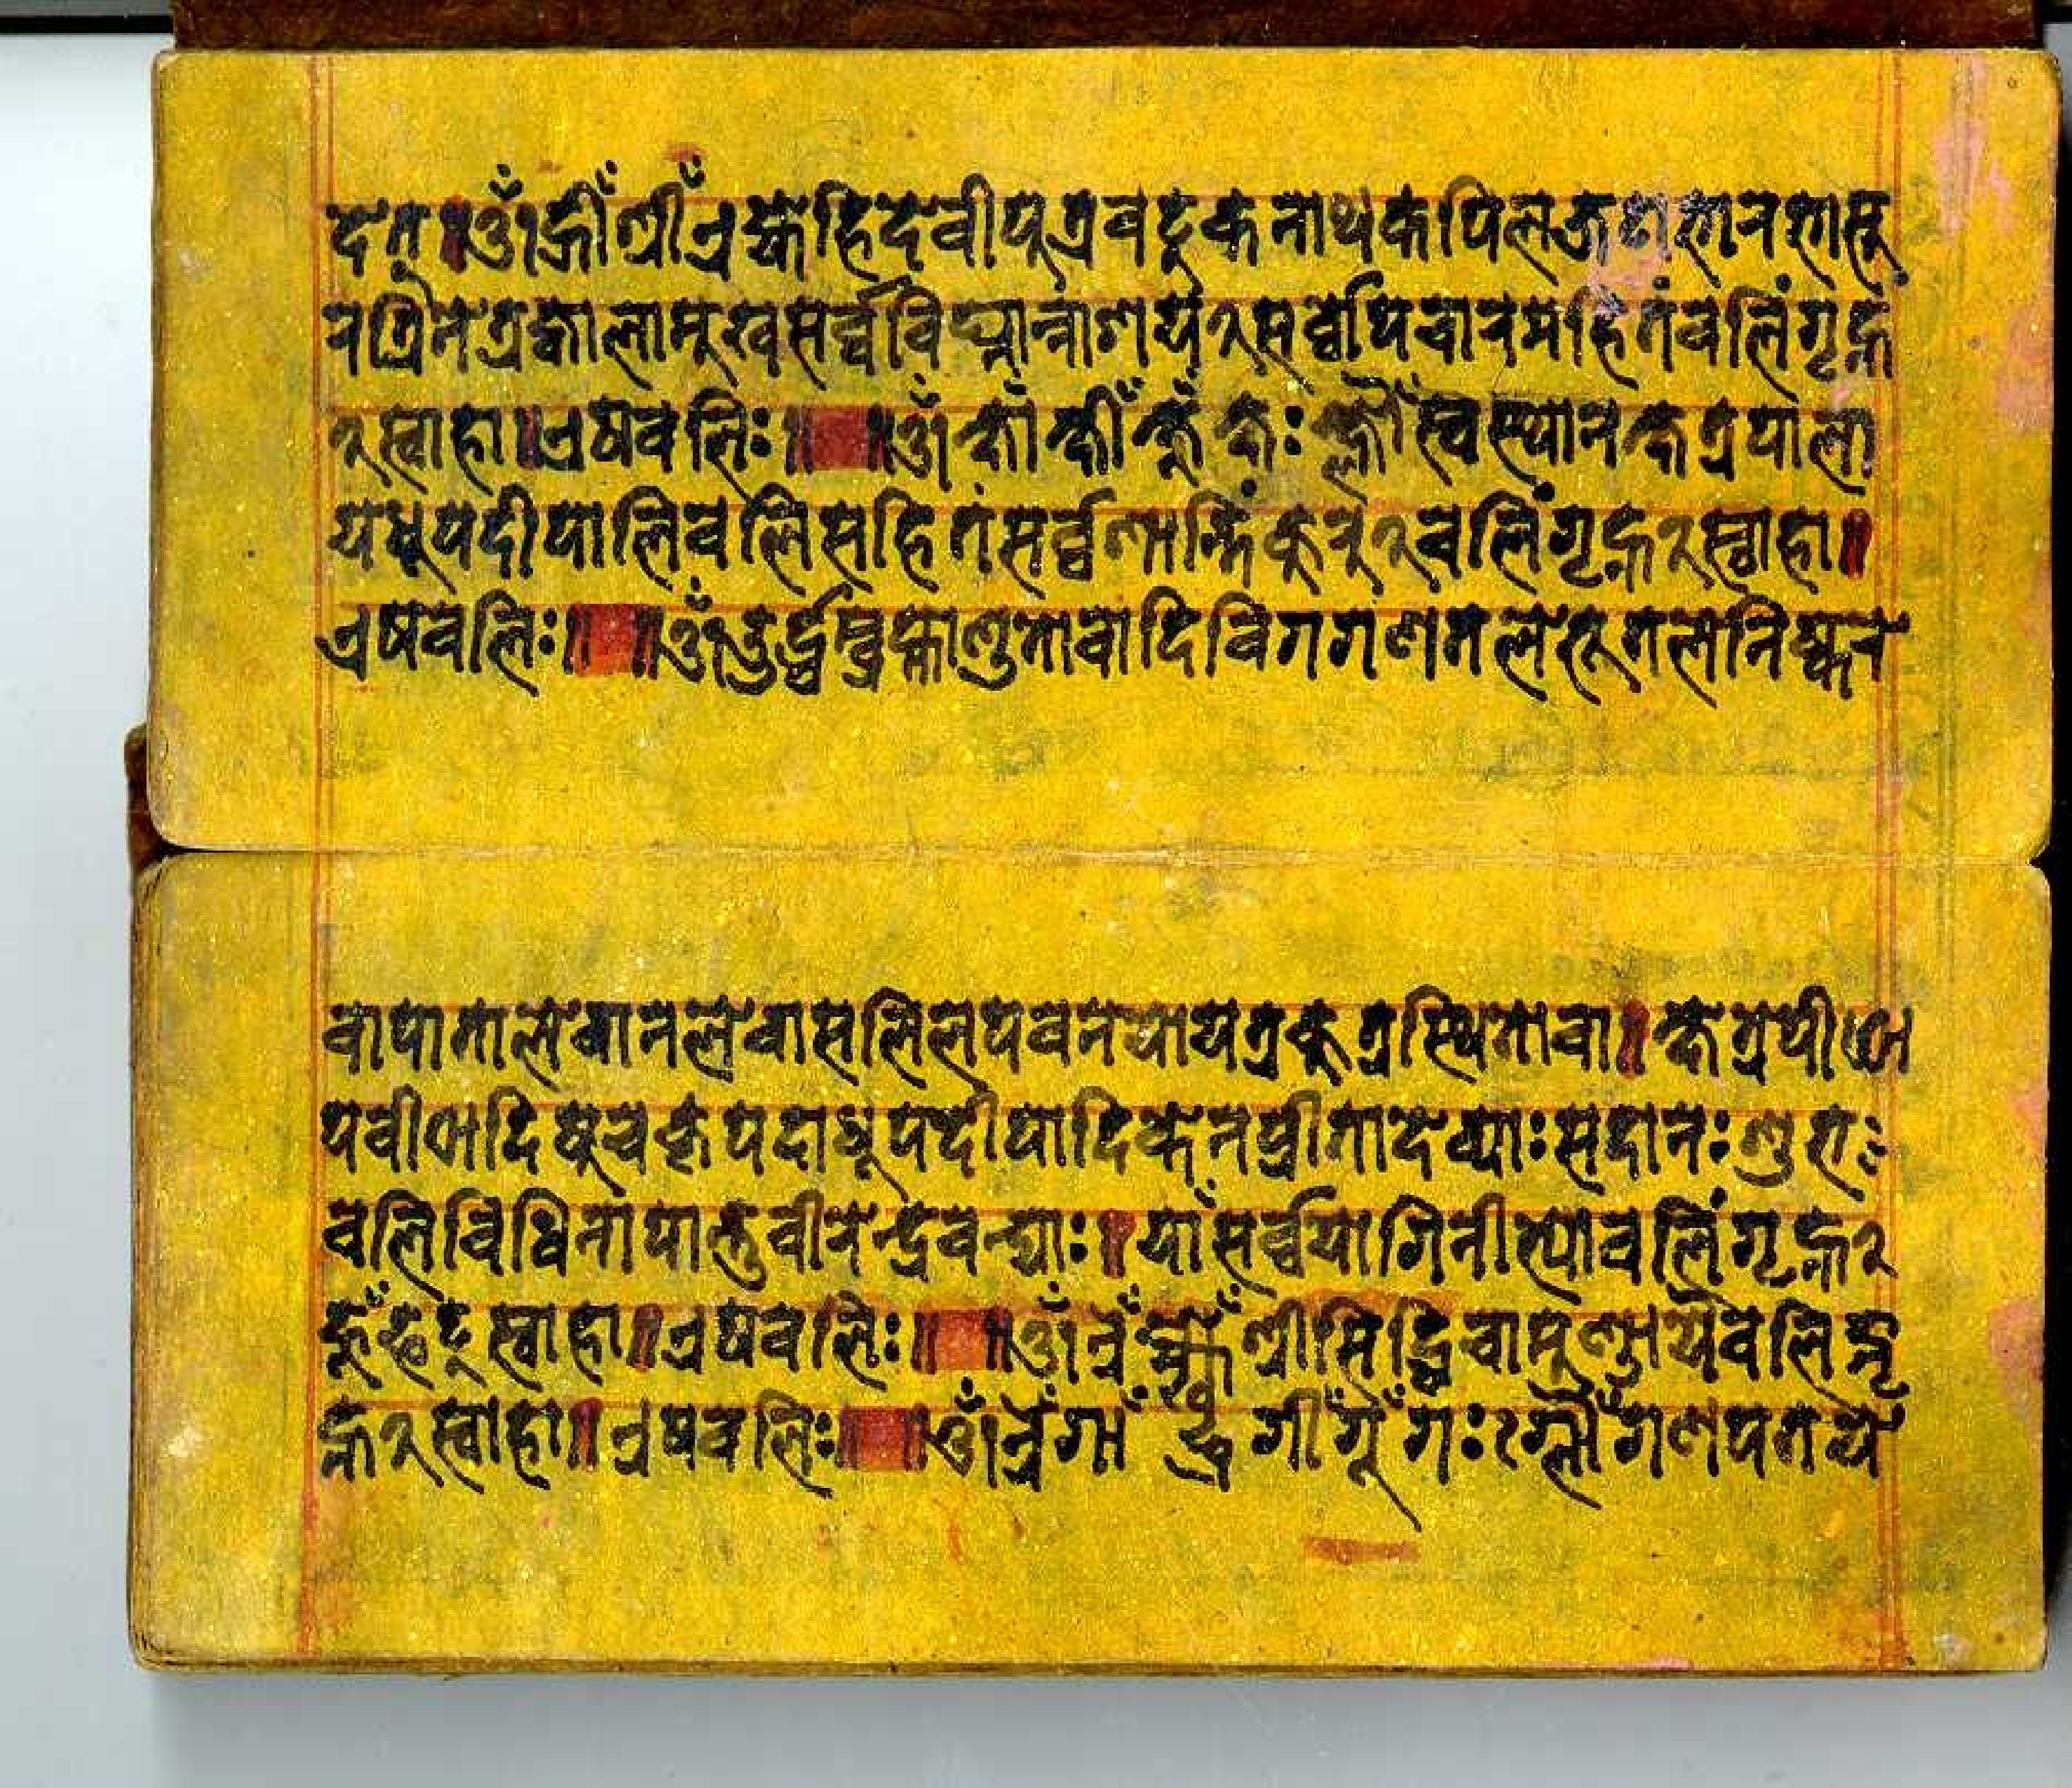 दतृ॥ ॐ ह्रीँ श्रीँ एह्येहि देवीपुत्र वटुकनाथ कपिलजटाभारभासु
र त्रिनेत्र ज्वालामुख सर्व्वविघ्नान्नाशय २ सर्व्वोपचारसहितं वलिं गृह्ण
२ स्वाहा॥ एष वलिः॥ ॥ ॐ क्षाँ क्षीँ क्षूँ क्षः स्वस्थानक्षेत्रपाला
य धूपदीपालिवलिसहितं सर्व्वशान्तिं कुरु २ वलिं गृह्ण २ स्वाहा॥
एष वलिः॥ ॥ ॐ ऊर्द्ध्वे ब्रह्माण्डतो वा दिवि गगणतले भूतले निष्कले
वा पाताले वानले वा सलिलपवनयो यत्र कुत्र स्थितो वा॥ क्षेत्रे पीठो
पपीठादिषु च कृपदा धूपदीपादिकेन प्रीता देव्याः सदा नः शुभः
वलिविधिना पान्तु वीरेन्द्रवन्द्याः॥ याँ सर्व्वयोगिनीभ्यो वलिं गृह्ण २
हूँ फट् स्वाहा॥ एष वलिः॥ ॥ ॐ ऐँ श्री सिद्धिचामुण्डायै वलिं गृ
ह्ण २ स्वाहा॥ एष वलिः॥ ॥ ॐ ऐँ गाँ गीँ गूँ गः ग्लौँ गणपतये